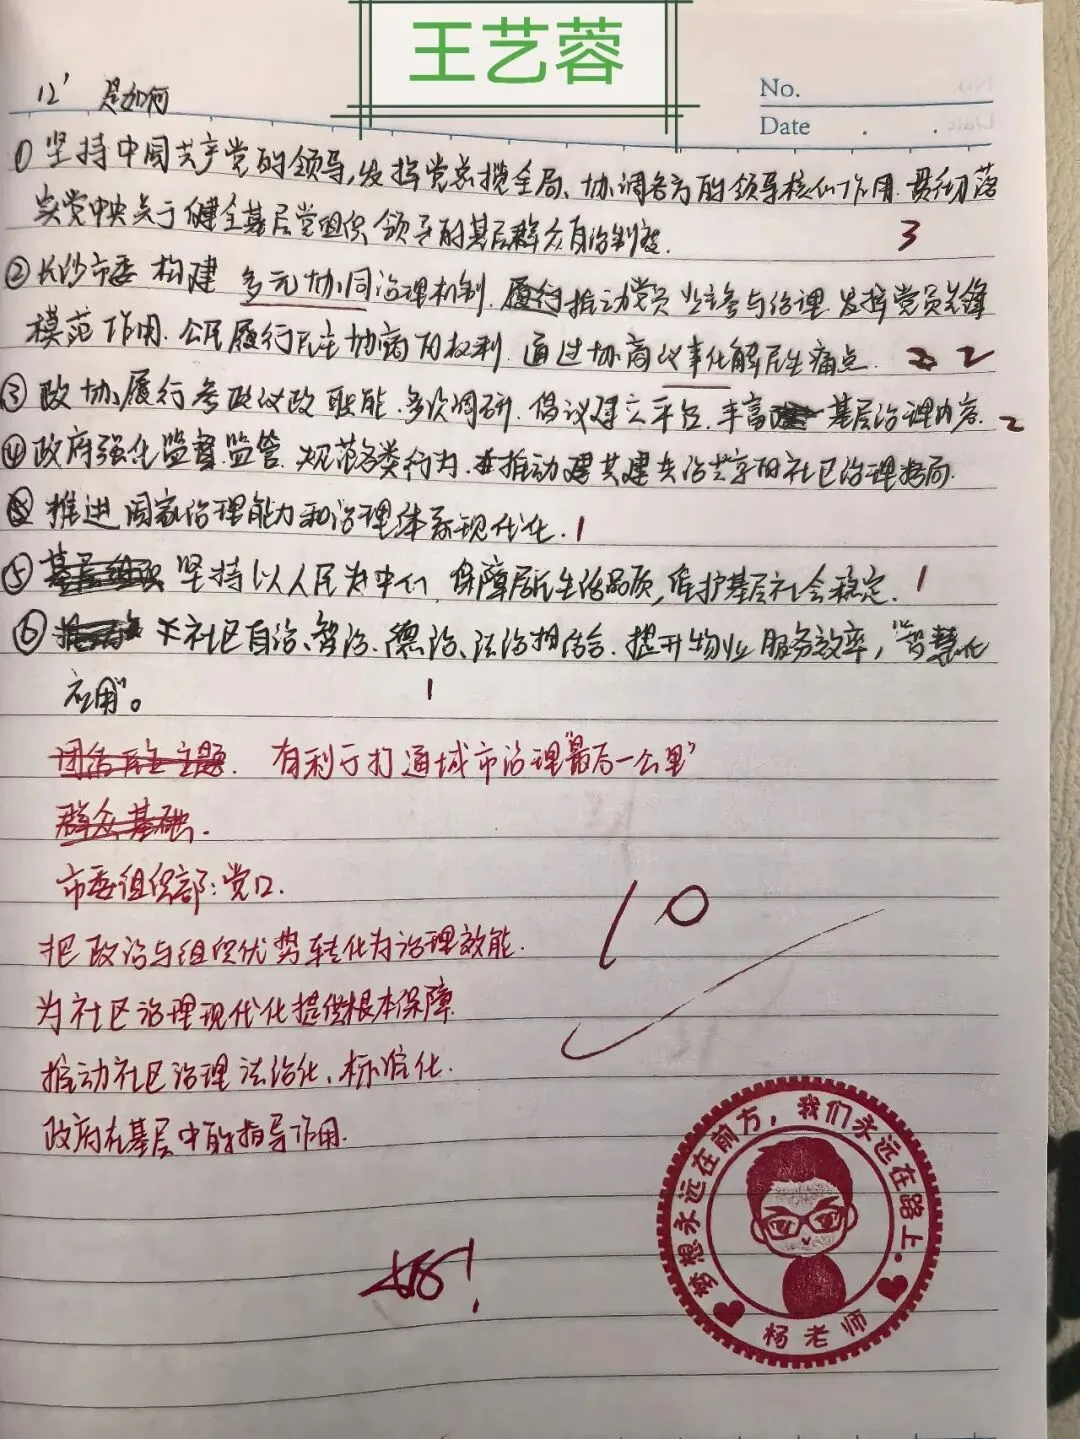 王艺蓉
No.
Date
12' 是如何
①坚持中国共产党的领导,发挥党总揽全局、协调各方的领导核心作用.贯彻落
实党中央关于健全基层党组织领导的基层群众自治制度.
3
②长沙市委 构建 多元协同治理机制.履行推动党员业主参与治理.发挥党员先锋
模范作用.公民履行民主协商的权利.通过协商议事化解民生痛点.
2
③政协履行参政议政职能.多次调研.倡议建立平台.丰富基层治理内容.
2
④政府强化监督.监管.规范各类行为.推动建共建共治共享的社区治理格局.
推进国家治理能力和治理体系现代化.
1
⑤坚持以人民为中心,保障居民生活品质,维护基层社会稳定.
1
⑥社区自治、智治、德治、法治相结合.提升物业服务效率,"智慧化
应用"。
1
有利于打通城市治理"最后一公里"
群众基础.
市委组织部:党口.
把政治与组织优势转化为治理效能.
为社区治理现代化提供根本保障.
推动社区治理法治化、标准化.
政府在基层中的指导作用.
10
好!
梦想永远在前方,我们永远在路上.
杨老师